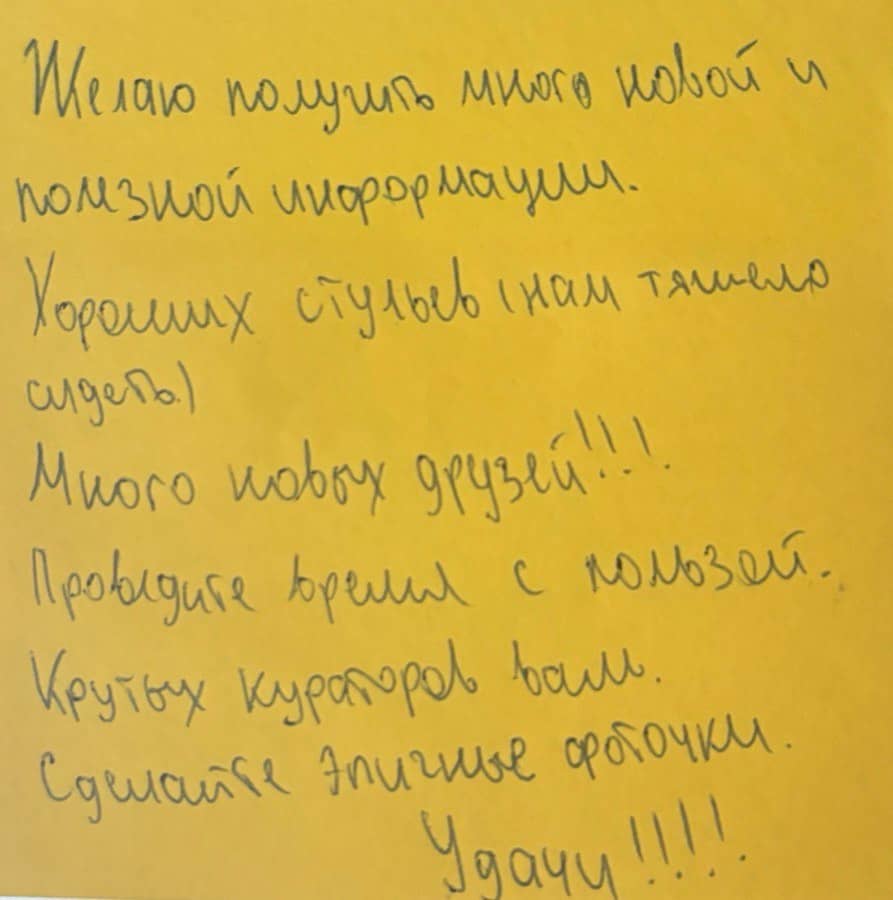 Желаю получить много новой и
полезной информации.
Хороших стульев (нам тяжело
сидеть)
Много новых друзей!!!
Проведите время с пользой.
Крутых кураторов вам.
Сделайте эпичные фоточки.
Удачи!!!!